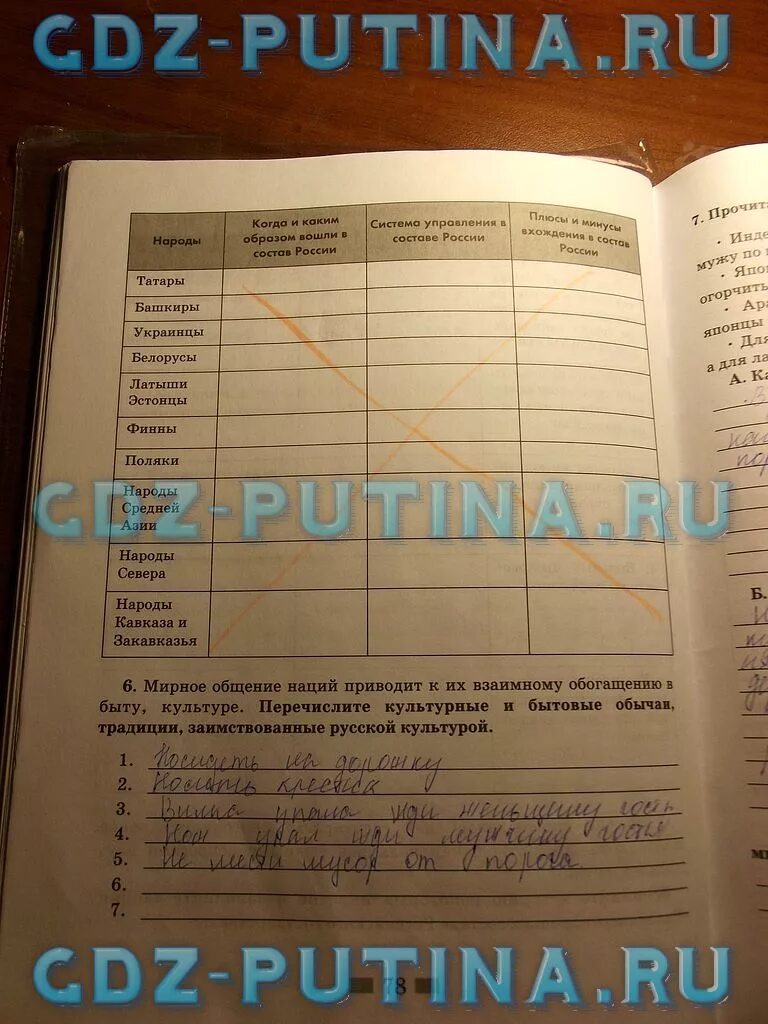 GDZ-PUTINA.RU
Народы
Когда и каким
образом вошли в
состав России
Система управления в
составе России
Плюсы и минусы
вхождения в состав
России
Татары
Башкиры
Украинцы
Белорусы
Латыши
Эстонцы
Финны
Поляки
GDZ-PUTINA.RU
Народы
Средней
Азии
Народы
Севера
Народы
Кавказа и
Закавказья
6. Мирное общение наций приводит к их взаимному обогащению в
быту, культуре. Перечислите культурные и бытовые обычаи,
традиции, заимствованные русской культурой.
1. Посидеть на дорожку
2. Носить крестик
3. Вилка упала жди женьщину гостя
4. Нож упал жди мужчину гостя
5. Не мести мусор от порога
6.
7.
GDZ-PUTINA.RU
78
7. Прочита
• Инде
мужу по
• Япон
огорчить
• Ара
японцы
• Для
а для ла
А. Ка
Б.